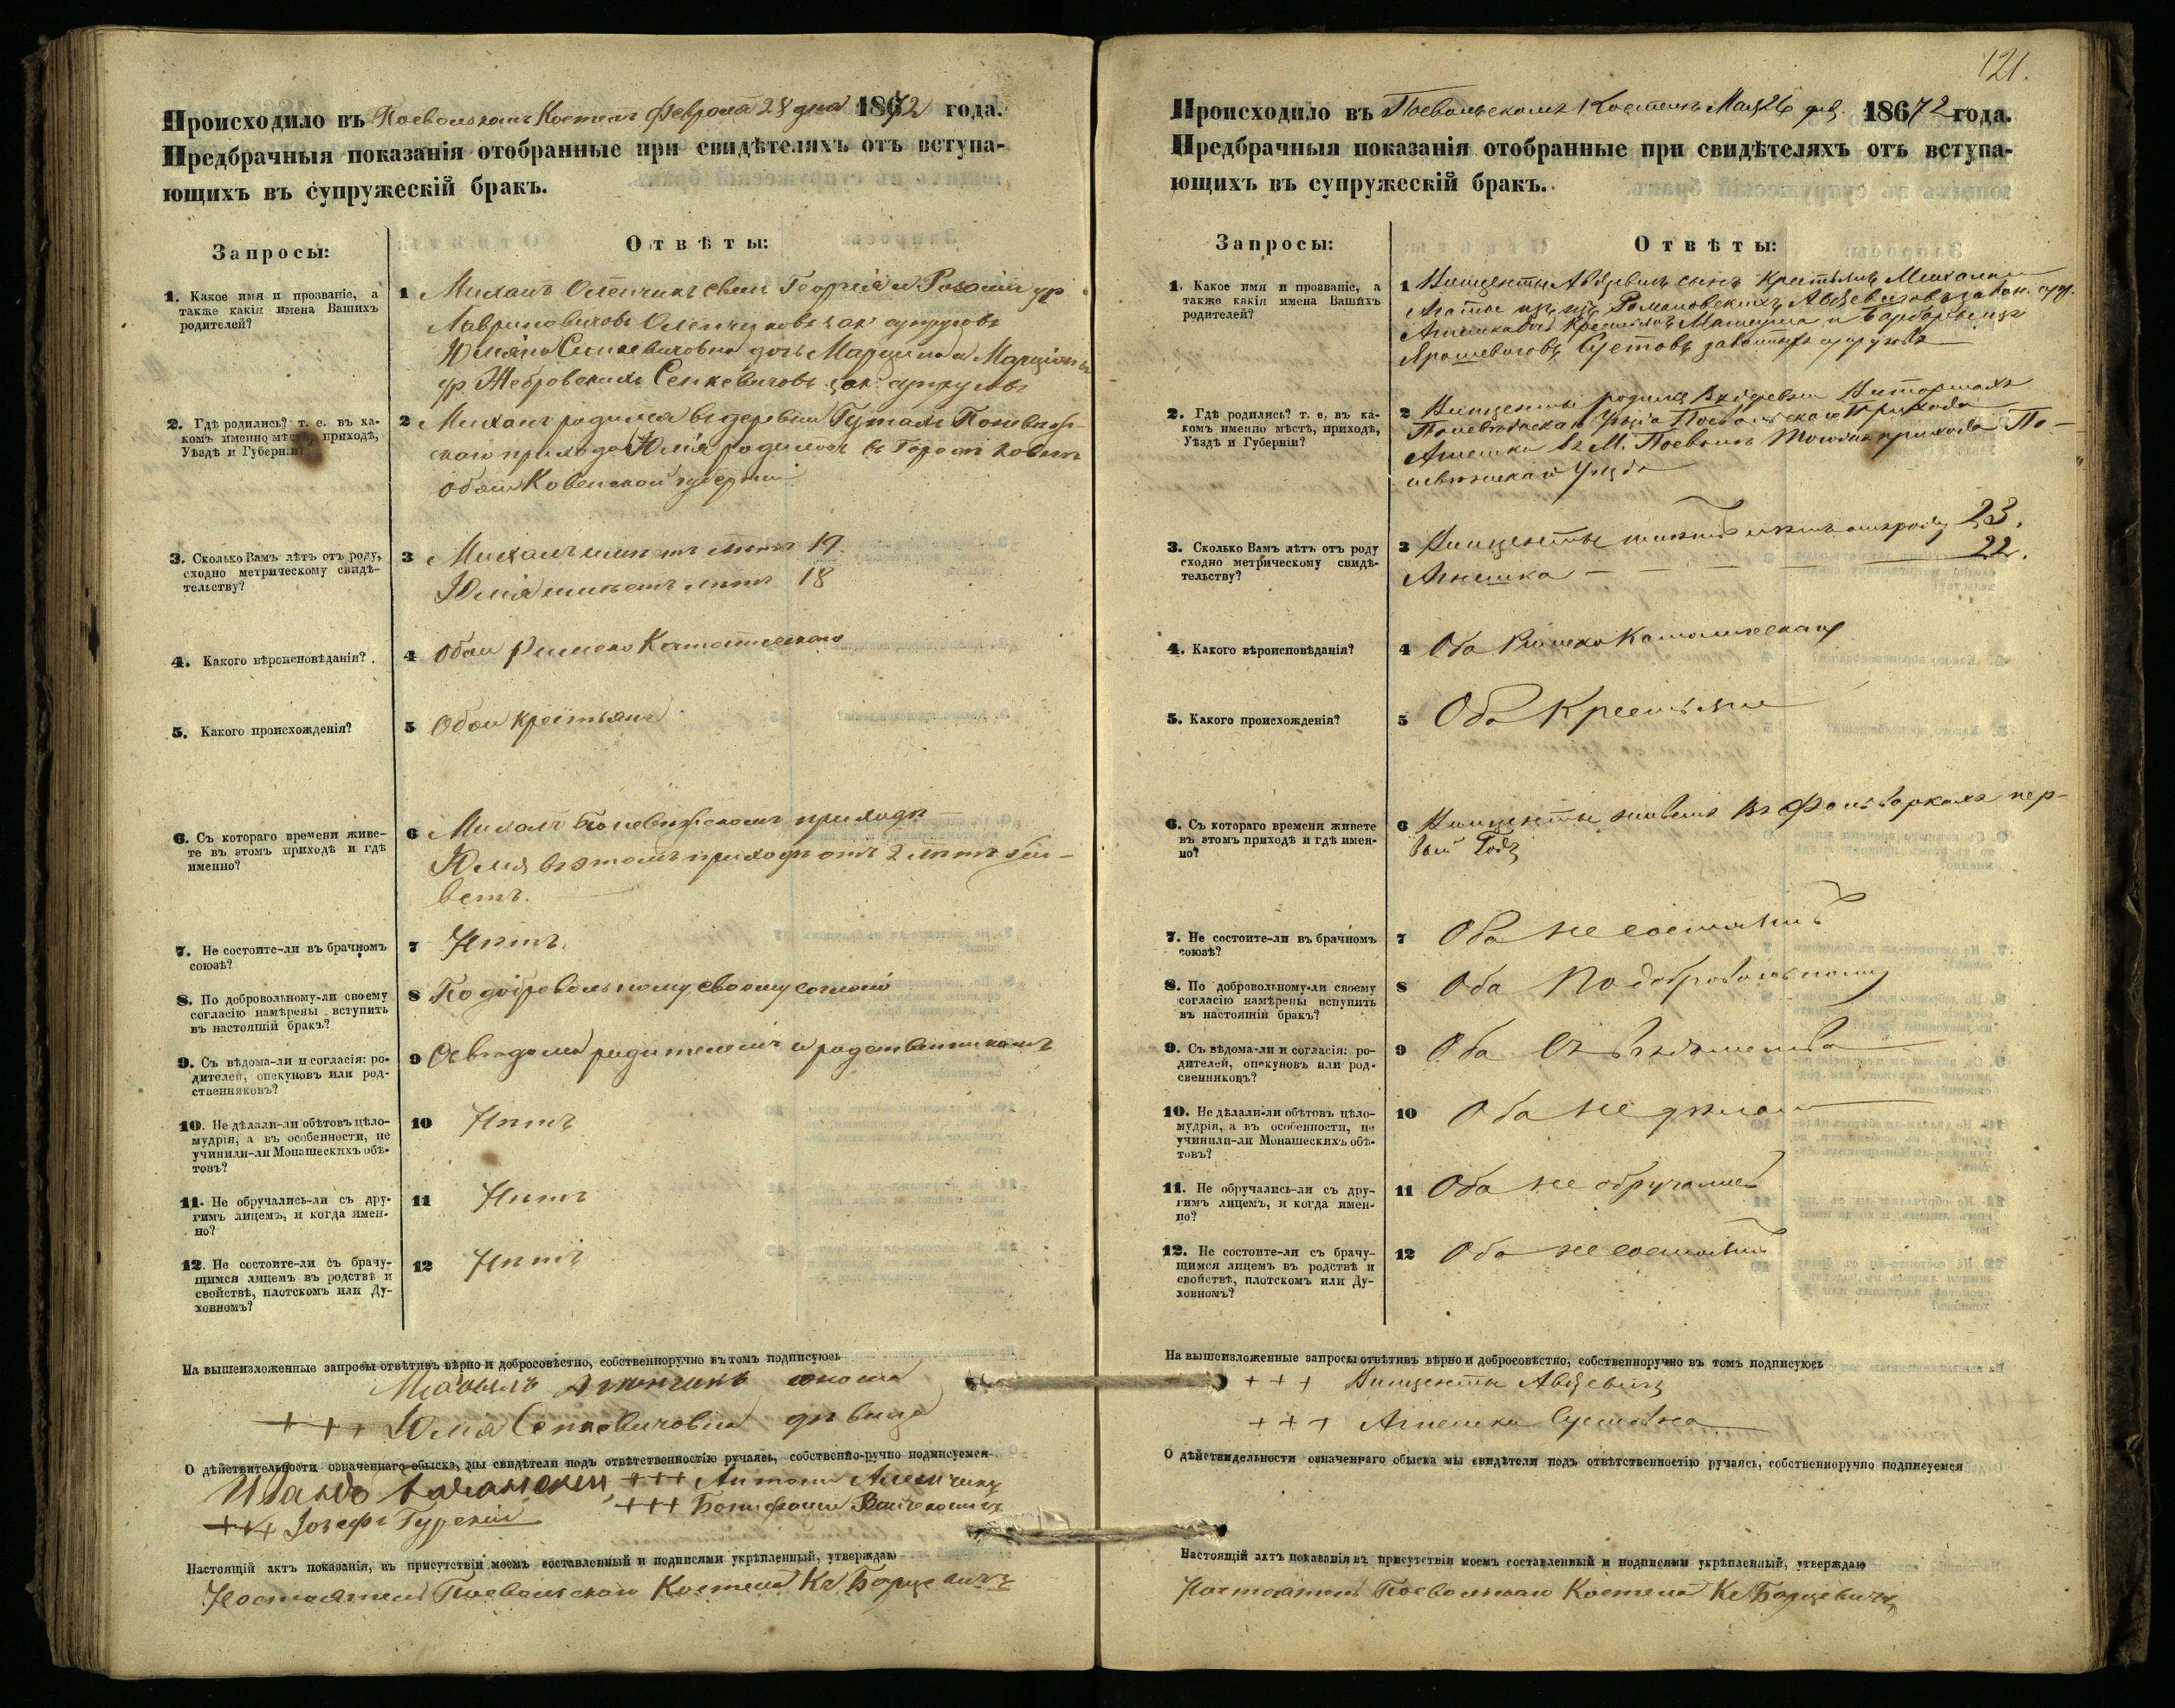 Происходило въ Поевольскомъ Костелѣ Февраля 28 дня 1872 года.
Предбрачныя показанія отобранные при свидѣтеляхъ отъ вступа-
ющихъ въ супружескій бракъ.
Запросы:
Отвѣты:
1. Какое имя и прозваніе, а
также какія имена Вашихъ
родителей?
1 Михаилъ Оленчикъ сынъ Георгія и Розаліи ур
Лавриновичовъ Оленчиковъ зак супруговъ
Сенкевичовна дочь Марцина и
ур Жебровскихъ Сенкевичовъ зак супруговъ
2. Гдѣ родились? т. е. въ ка-
комъ именно мѣстѣ, приходѣ,
Уѣздѣ и Губерніи?
2 Михаилъ родился въ деревни Поневѣж-
скаго прихода Юлія родилась в Городѣ
обои Ковенской губерніи
3. Сколько Вамъ лѣтъ отъ роду,
сходно метрическому свидѣ-
тельству?
3 Михаилъ имѣетъ лѣтъ 19.
Юлія имѣетъ лѣтъ 18
4. Какого вѣроисповѣданія?
4 Обои Римско Католическаго
5. Какого происхожденія?
5 Обои крестьяне
6. Съ котораго времени живе-
те въ этомъ приходѣ и гдѣ
именно?
6 Михаилъ Поневѣжскомъ приходѣ
Юлія въ этомъ приходѣ отъ 2 лѣтъ жи-
ветъ.
7. Не состоите-ли въ брачномъ
союзѣ?
7 Нѣтъ
8. По добровольному-ли своему
согласію намѣрены вступить
въ настоящій бракъ?
8 По добровольному своему согласію
9. Съ вѣдома-ли и согласія: ро-
дителей, опекуновъ или род-
ственниковъ?
9 Съ вѣдома родителей и родственниковъ
10. Не дѣлали-ли обѣтовъ цѣло-
мудрія, а въ особенности, не
учинили-ли Монашескихъ обѣ-
товъ?
10 Нѣтъ
11. Не обручались-ли съ дру-
гимъ лицемъ, и когда имен-
но?
11 Нѣтъ
12. Не состоите-ли съ брачу-
щимся лицемъ въ родствѣ и
свойствѣ, плотскомъ или Ду-
ховномъ?
12 Нѣтъ
На вышеизложенные запросы отвѣтивъ вѣрно и добросовѣстно, собственноручно въ томъ подписуюсь
юноша
+ + + Юлія Сенкевичовна дѣвица
О дѣйствительности означеннаго обыска, мы свидѣтели подъ отвѣтственностію ручаясь, собственно-ручно подписуемся
+++ Антони
+++ Бонифаци
+++ Іозефъ Гурскій
Настоящій актъ показанія, въ присутствіи моемъ составленный и подписями укрѣпленный, утверждаю
Настоятель Поевольскаго Костела Кс Борцевичъ
121.
Происходило въ Поевольскомъ Костелѣ Мая 26 дня 1872 года.
Предбрачныя показанія отобранные при свидѣтеляхъ отъ вступа-
ющихъ въ супружескій бракъ.
Запросы:
Отвѣты:
1. Какое имя и прозваніе, а
также какія имена Вашихъ
родителей?
1 Винценты Авдзевичъ сынъ крестьянъ Михала и
Агаты изъ Романовскихъ Авдзевичовъ закон. супр.
Агнешка дочь крестьянъ Матеуша и Барбары изъ
Ярошевичовъ законныхъ супруговъ
2. Гдѣ родились? т. е. въ ка-
комъ именно мѣстѣ, приходѣ,
Уѣздѣ и Губерніи?
2 Винценты родился въ деревни
Поневѣжскаго Уѣзда Поевольскаго Прихода
Агнешка въ М. Поевольѣ тогожъ прихода По-
невѣжскаго Уѣзда
3. Сколько Вамъ лѣтъ отъ роду
сходно метрическому свидѣ-
тельству?
3 Винценты имѣетъ лѣтъ отъ роду 23.
Агнешка — — — — 22.
4. Какого вѣроисповѣданія?
4 Оба Римско Католическаго
5. Какого происхожденія?
5 Оба Крестьяне
6. Съ котораго времени живете
въ этомъ приходѣ и гдѣ имен-
но?
6 Винценты живетъ въ Фольваркахъ пер-
вый Годъ
7. Не состоите-ли въ брачномъ
союзѣ?
7 Оба не состоятъ
8. По добровольному-ли своему
согласію намѣрены вспупить
въ настоящій бракъ?
8 Оба По добровольному
9. Съ вѣдома-ли и согласія: ро-
дителей, опекуновъ или род-
свенниковъ?
9 Оба Съ
10. Не дѣлали-ли обѣтовъ цѣло-
мудрія, а въ особенности, не
учинили-ли Монашескихъ обѣ-
товъ?
10 Оба не дѣлали
11. Не обручались-ли съ дру-
гимъ лицемъ, и когда имен-
но?
11 Оба не обручались
12. Не состоите-ли съ брачу-
щимся лицемъ въ родствѣ и
свойствѣ, плотскомъ или Ду-
ховномъ?
12 Оба не состоятъ
На вышеизложенные запросы отвѣтивъ вѣрно и добросовѣстно, собственноручно въ томъ подписуюсь
+ + + Винценты Авдзевичъ
+ + + Агнешка
О дѣйствидельности означеннаго обыска мы свидѣтели подъ отвѣтственностію ручаясь, собственноручно подписуемся
Настоящій актъ показанія въ присутствіи моемъ составленный и подписями укрѣпленный, утверждаю
Настоятель Поевольскаго Костела Кс Борцевичъ